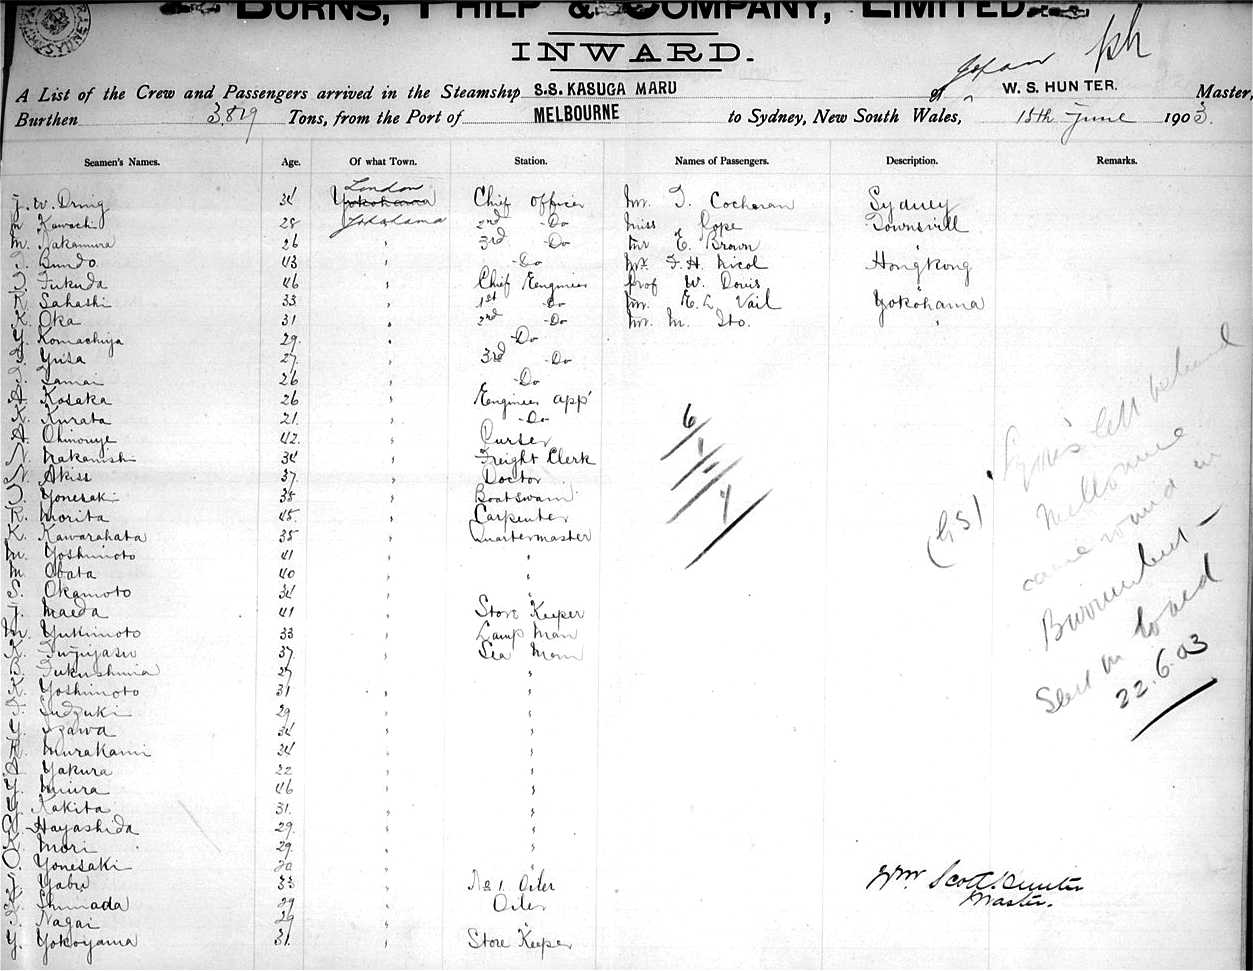 BURNS, PHILP & COMPANY, LIMITED.
INWARD.
A List of the Crew and Passengers arrived in the Steamship S.S. KASUGA MARU of Japan W. S. HUNTER. Master,
Burthen 3,819 Tons, from the Port of MELBOURNE to Sydney, New South Wales, 15th June 1903.
Seamen's Names. Age. Of what Town. Station. Names of Passengers. Description. Remarks.
J. W. 34 London Yokohama Chief Officer Mr. T. Cochran Sydney
Kawachi 28 Yokohama 2nd Do Miss Pope Townsvill
M. Nakamura 26 " 3rd Do Mr E. Brown "
Bundo 43 " Do Mr. F. H. Nicol Hongkong
Fukuda 46 " Chief Engineer Prof W. Davis "
K. Sahashi 33 " 1st Do Mr. E. L. Vail Yokohama
K. Oka 31 " 2nd Do Mr. M. Ito. "
Y. Komachiya 29 " Do
Yusa 27 " 3rd Do
Tamai 26 " Do
Kosaka 26 " Engineer app'
K. Kurata 21 " Do
42 " Purser
N. Nakanishi 34 " Freight Clerk
N. 37 " Doctor
Yonesaki 38 " Boatswain
R. Morita 45 " Carpenter
K. Kawarahata 35 " Quartermaster
M. Yoshimoto 41 " "
M. Obata 40 " "
S. Okamoto 34 " "
Maeda 41 " Store Keeper
M. Yukimoto 33 " Lamp Man
K. 37 " Sea Man
B. Fukushima 27 " "
K. Yoshimoto 31 " "
Sudzuki 29 " "
Izawa 34 " "
Murakami 34 " "
Yakura 22 " "
Y. Miura 46 " "
Kakita 31 " "
Hayashida 29 " "
K. Mori 29 " "
O. Yonesaki 20 " "
Yabu 33 " No 1. Oiler
Shimada 29 " Oiler
Nagai 29 " "
Y. Yokoyama 31 " Store Keeper
6
1
7
left behind
Melbourne
came round in
Burrumbeet -
Sent on board
22.6.03
Wm Scott Hunter
Master.